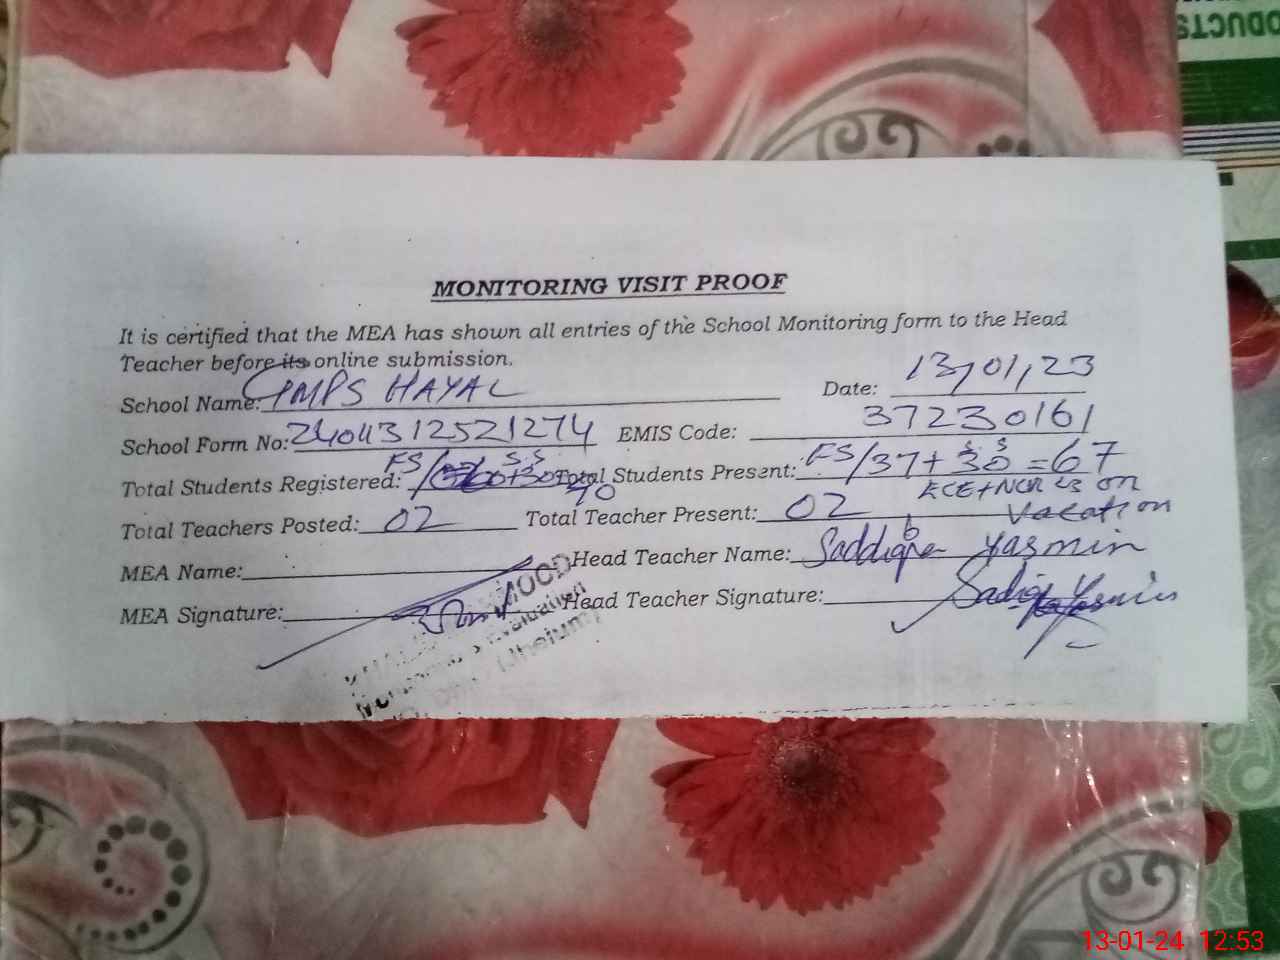 ODUCTS
MONITORING VISIT PROOF
It is certified that the MEA has shown all entries of the School Monitoring form to the Head
Teacher before its online submission.
School Name: GMPS HAYAL Date: 13/01/23
School Form No: EMIS Code: 37230161
Total Students Registered: FS/ S.S 70 Total Students Present: FS/37+30 S S =67
ECE+NCR is on
Total Teachers Posted: 02 Total Teacher Present: 02 Vacation
MEA Name: Head Teacher Name: Yasmin
MEA Signature: Head Teacher Signature:
MOOD
Evaluation
Jhelum
13-01-24 12:53